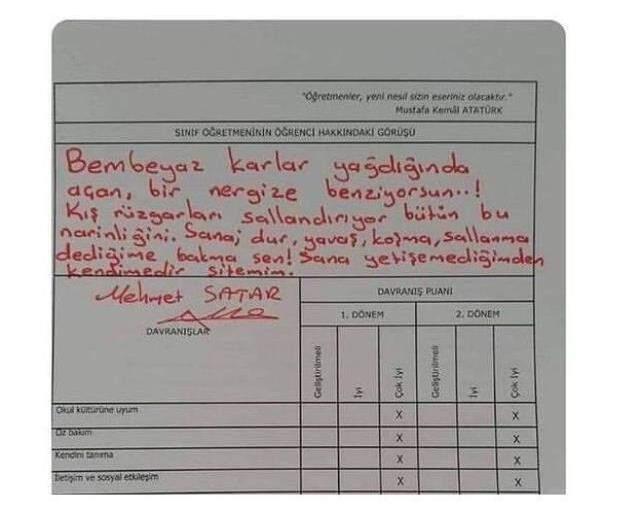 "Öğretmenler, yeni nesil sizin eseriniz olacaktır."
Mustafa Kemâl ATATÜRK
SINIF ÖĞRETMENİNİN ÖĞRENCİ HAKKINDAKİ GÖRÜŞÜ
Bembeyaz karlar yağdığında
açan, bir nergize benziyorsun..!
Kış rüzgarları sallandırıyor bütün bu
narinliğini. Sana; dur, yavaş, koşma, sallanma
dediğime bakma sen! Sana yetişemediğimden
kendimedir sitemim.
Mehmet SATAR
DAVRANIŞ PUANI
1. DÖNEM 2. DÖNEM
DAVRANIŞLAR
Geliştirilmeli İyi Çok İyi Geliştirilmeli İyi Çok İyi
Okul kültürüne uyum X X
Öz bakım X X
Kendini tanıma X X
İletişim ve sosyal etkileşim X X